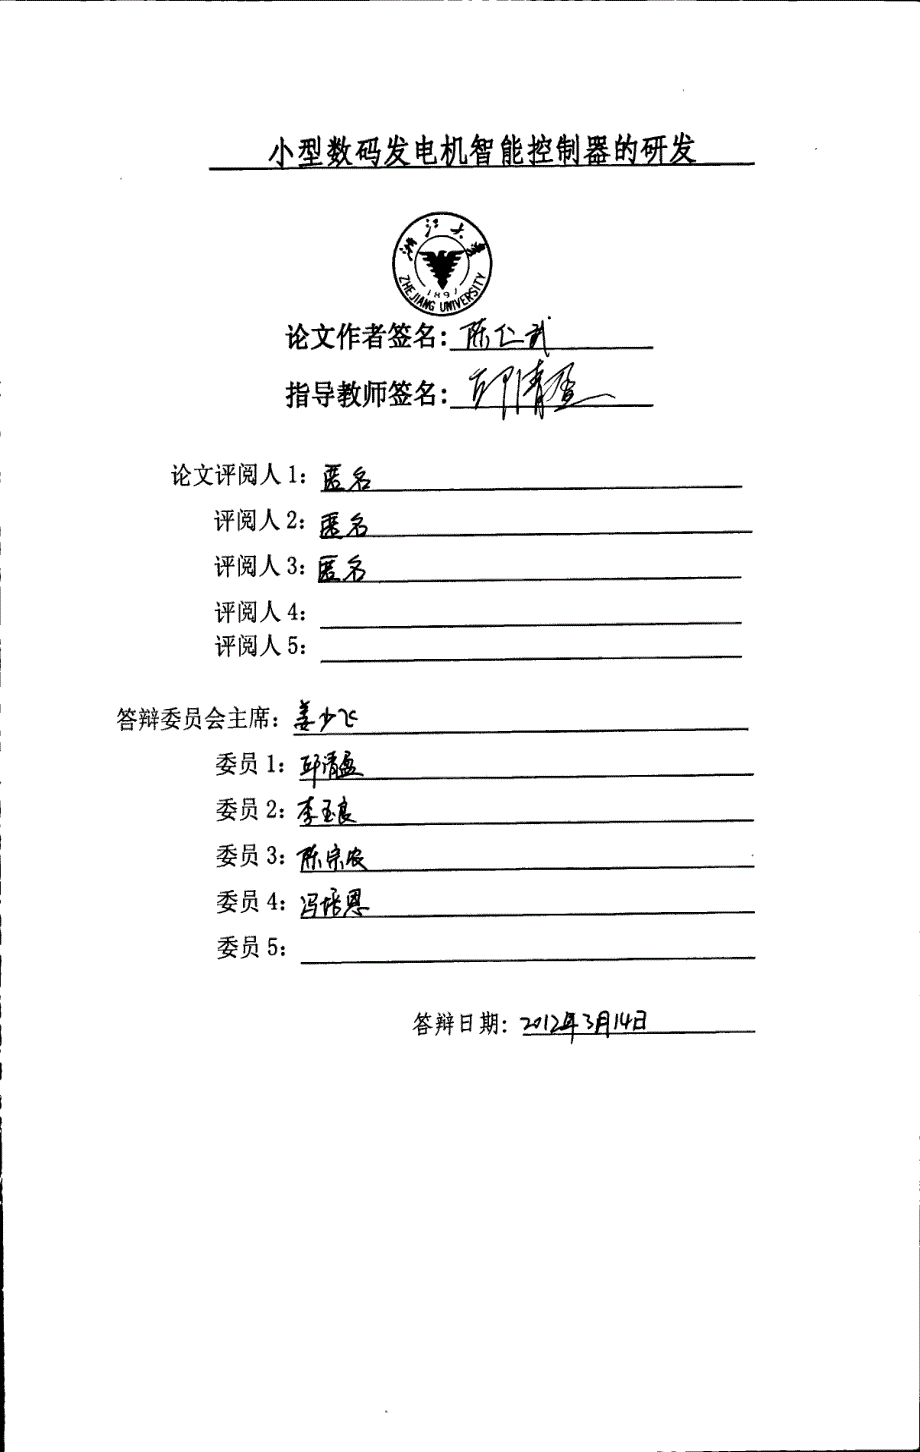 小型数码发电机智能控制器的研发
浙江大学
1897
ZHEJIANG UNIVERSITY
论文作者签名: 陈仁武
指导教师签名: 邱清盈
论文评阅人1: 匿名
评阅人2: 匿名
评阅人3: 匿名
评阅人4:
评阅人5:
答辩委员会主席: 姜少飞
委员1: 邱清盈
委员2: 李玉良
委员3: 陈宗农
委员4: 冯培恩
委员5:
答辩日期: 2012年3月14日